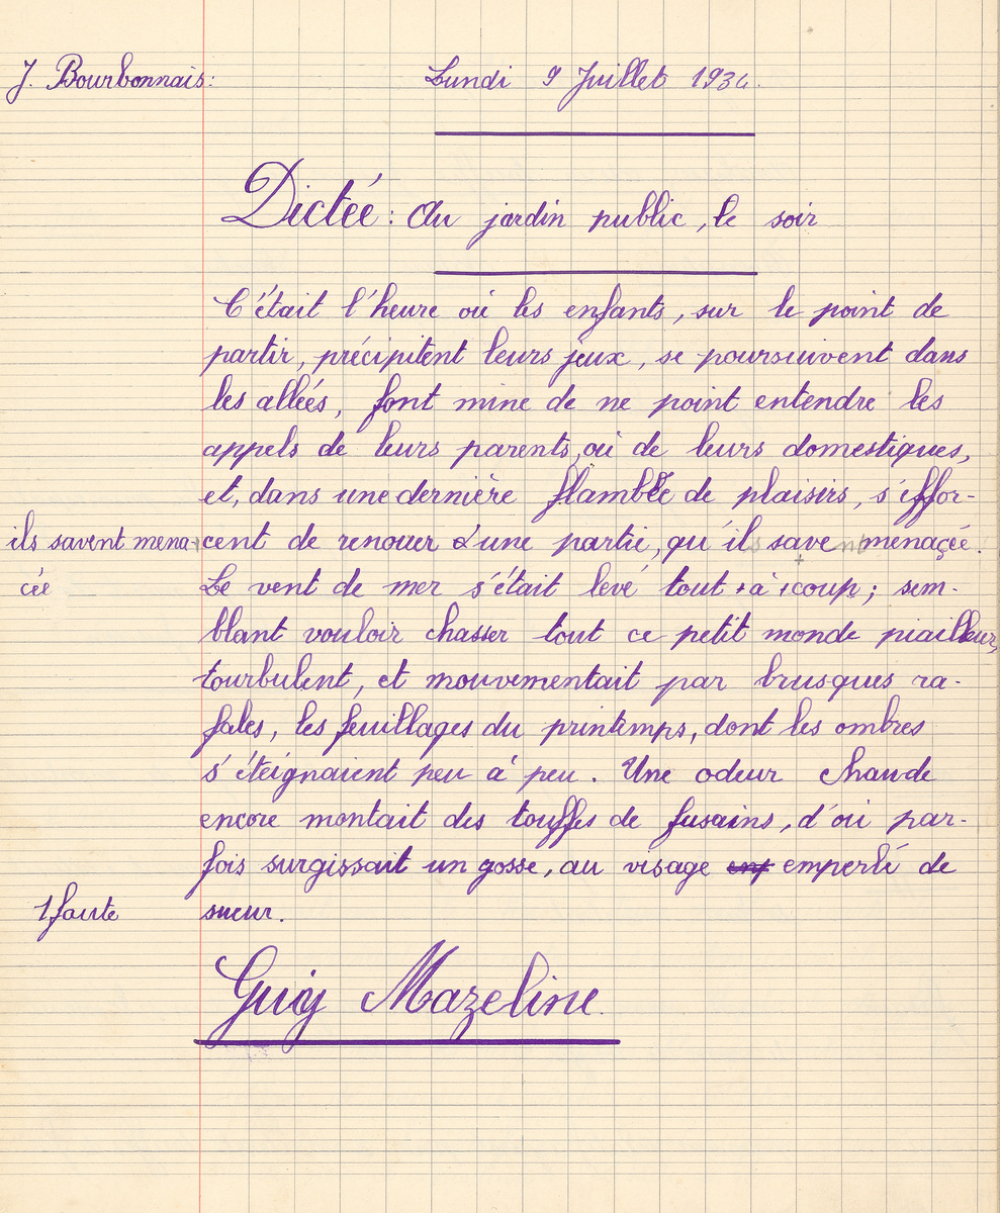 J. Bourbonnais:
Lundi 9 Juillet 1934.
Dictée : Au jardin public, le soir
C'était l'heure où les enfants, sur le point de
partir, précipitent leurs jeux, se poursuivent dans
les allées, font mine de ne point entendre les
appels de leurs parents, où de leurs domestiques,
et, dans une dernière flambée de plaisirs, s'effor-
ils savent mena-
cent de renouer d'une partie, qu'ils savent menaçée.
cée
Le vent de mer s'était levé tout à coup; sem-
blant vouloir chasser tout ce petit monde piailleur,
tourbulent, et mouvementait par brusques ra-
fales, les feuillages du printemps, dont les ombres
s'éteignaient peu à peu. Une odeur chaude
encore montait des touffes de fusains, d'où par-
fois surgissait un gosse, au visage emperlé de
1 faute
sueur.
Guy Mazeline.